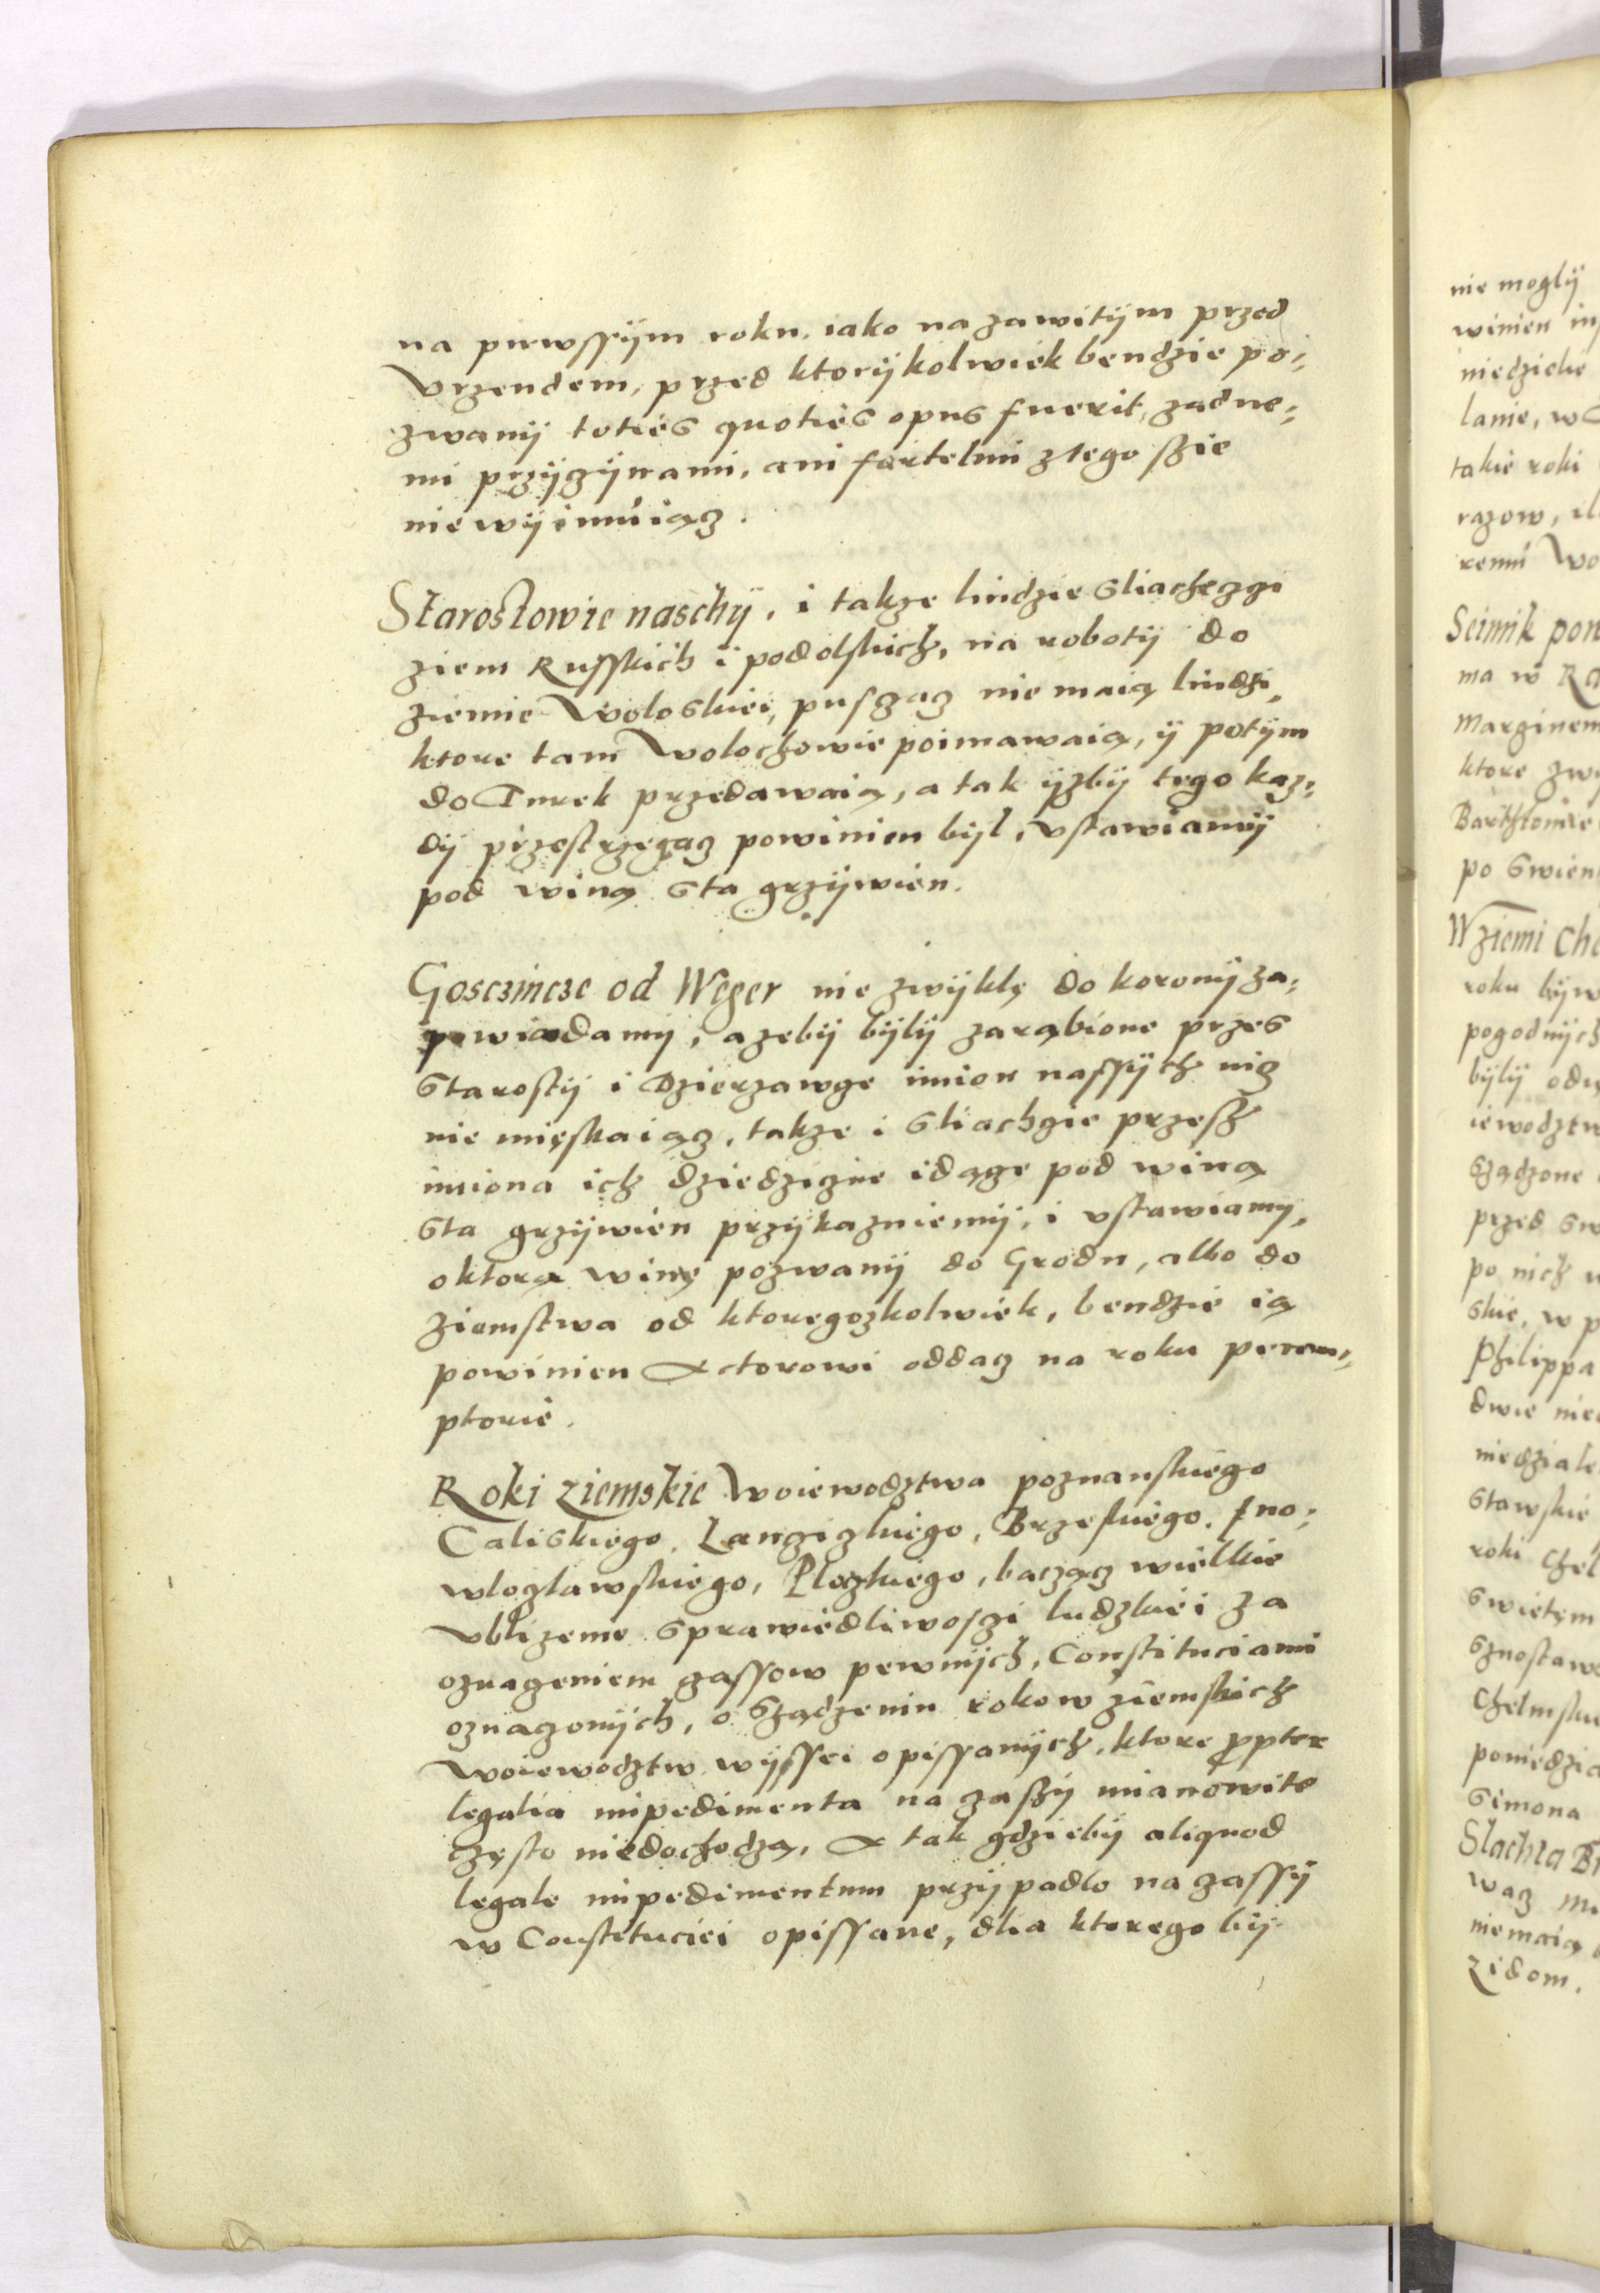 na pirwssÿm roku. iako na zawitÿm przed
Vrzendem, przed ktorÿkolwiek bendzie po=
zwanÿ toties quoties opus fuerit, zadne=
mi przÿczÿnami, ani fortelmi z tego szie
nie wÿimuiącz.
Starostowie naschÿ, i takze liudzie sliacheczgi
ziem Russkich i podolskich, na robotÿ do
ziemie Woloskiei, puszczacz nie maią liudzi,
ktore tam Wolochowie poimawaią, ÿ potÿm
do Turek przedawaią, a tak ÿzbÿ tego kaz=
dÿ przestrzegacz powinien bÿl, vstawiamÿ
pod winą sta grzÿwien.
Gosczincze od Weger nie zwÿklę do koronÿ za=
powiadamÿ, azebÿ bÿlÿ zarąbione przes
Starostÿ i Dzierzawce imion nassÿch nicz
nie mięskaiącz, takze i sliachcie przesz
imiona ich dziedziczne idące pod winą
sta grzÿwien przÿkazuiemÿ, i vstawiamy,
o ktorą winę pozwanÿ do Grodu, albo do
ziemstwa od ktoregozkolwiek, bendzie ią
powinien Actorowi oddacz na roku perem=
ptorie.
Roki ziemskie Woiewodztwa poznanskiego
Caliskiego, Lanczizkiego, Brzeskiego. Ino=
wlozlawskiego, Plozkiego, baczącz wielkie
vblizenie sprawiedliwosczi ludzkiei za
oznaczeniem czassow pewnÿch, Constituciami
oznaczonÿch, o Sządzeniu rokow ziemskich
Woiewodztw wÿssei opissanÿch, ktore propter
legalia impedimenta na czassÿ mianowite
często niedochodzą, A tak gdziebÿ aliquod
legale impedimentum przÿpadlo na czassÿ
w Constituciei opissane, dlia ktorego bÿ
nie moglÿ
winien
niedziele
lanie,
takie roki
razow,
remu
Seimik
ma w
Marginem
ktore
po swien
W ziemi
roku
pogodnÿch
bÿlÿ
iewodztw
Sządzone
przed
po nich
skie, w
Philippa
dwie
niedziale
stawskie
roki
swiętÿm
poniedzia
Simona
Slachta
wacz
nie maią
zidom.